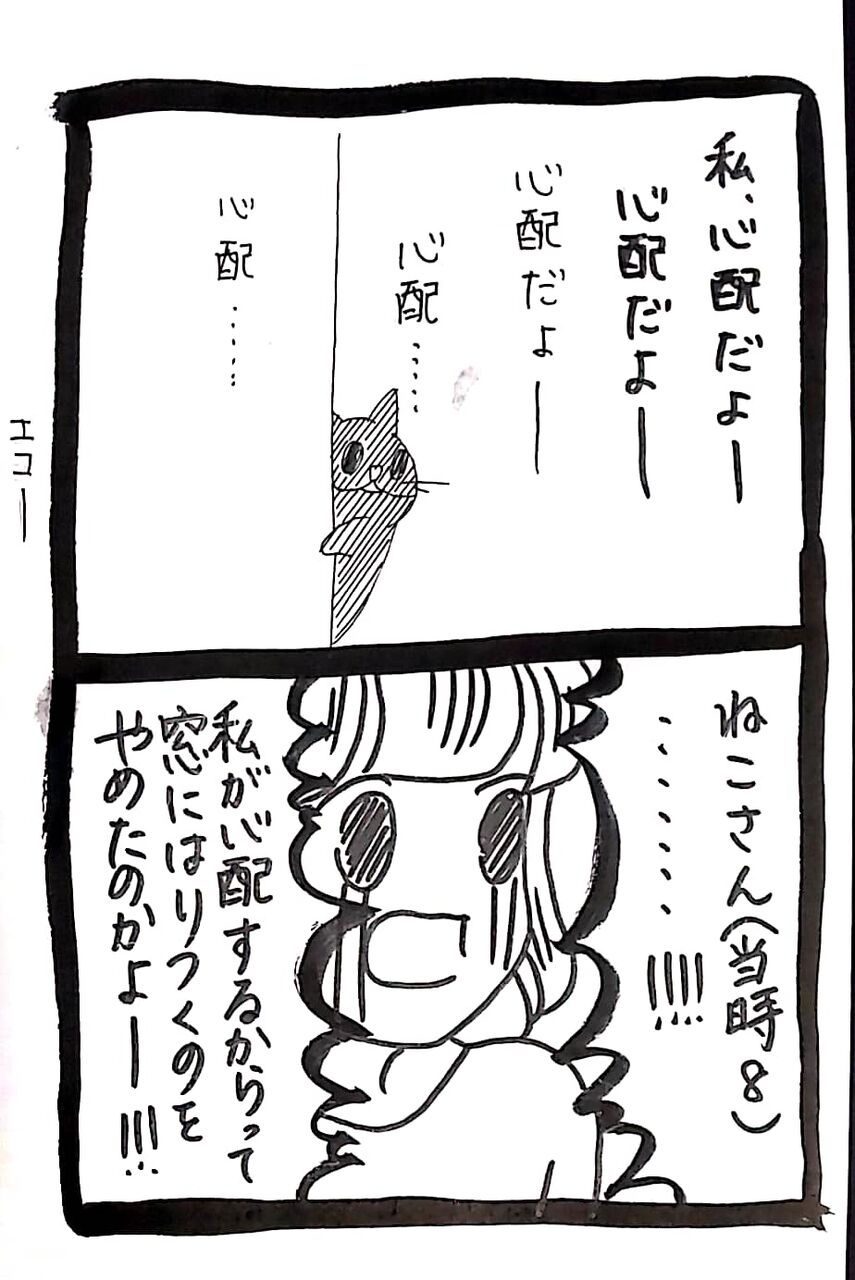 私、心配だよー
心配だよー
心配だよー
心配……
心配……
エコー
ねこさん(当時8)
………!!!!
私が心配するからって
窓にはりつくのを
やめたのかよー!!!!